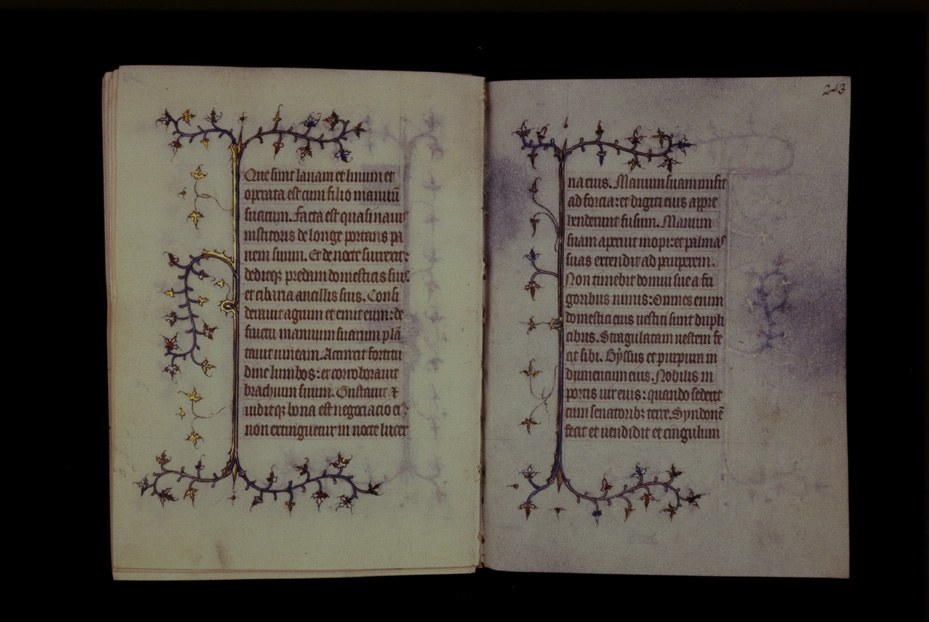 Que sivit lanam et linum et
operata est cum filio manuū
suarum. Facta est quasi nauis
institoris de longe portans pa
nem suum. Et de nocte surrexit:
deditqz predam domesticis suis:
et cibaria ancillis suis. Consi
derauit agrum et emit eum: de
fructu manuum suarum plā
tauit uineam. Accinxit fortitu
dine lumbos: et corroborauit
brachium suum. Gustauit et
uiditqz bona est negociacio eiꝰ:
non extinguetur in nocte lucer
243
na eius. Manum suam misit
ad forcia: et digiti eius appre
henderunt fusum. Manum
suam aperuit inopi: et palmas
suas extendit ad pauperem.
Non timebit domui sue a fri
goribus niuis: Omnes enim
domestici eius uestiti sunt dupli
cibus. Stragulatam uestem fe
cit sibi. Byssus et purpura in
dumentum eius. Nobilis in
portis uir eius: quando sederit
cum senatoribz terre. Syndonē
fecit et uendidit et cingulum